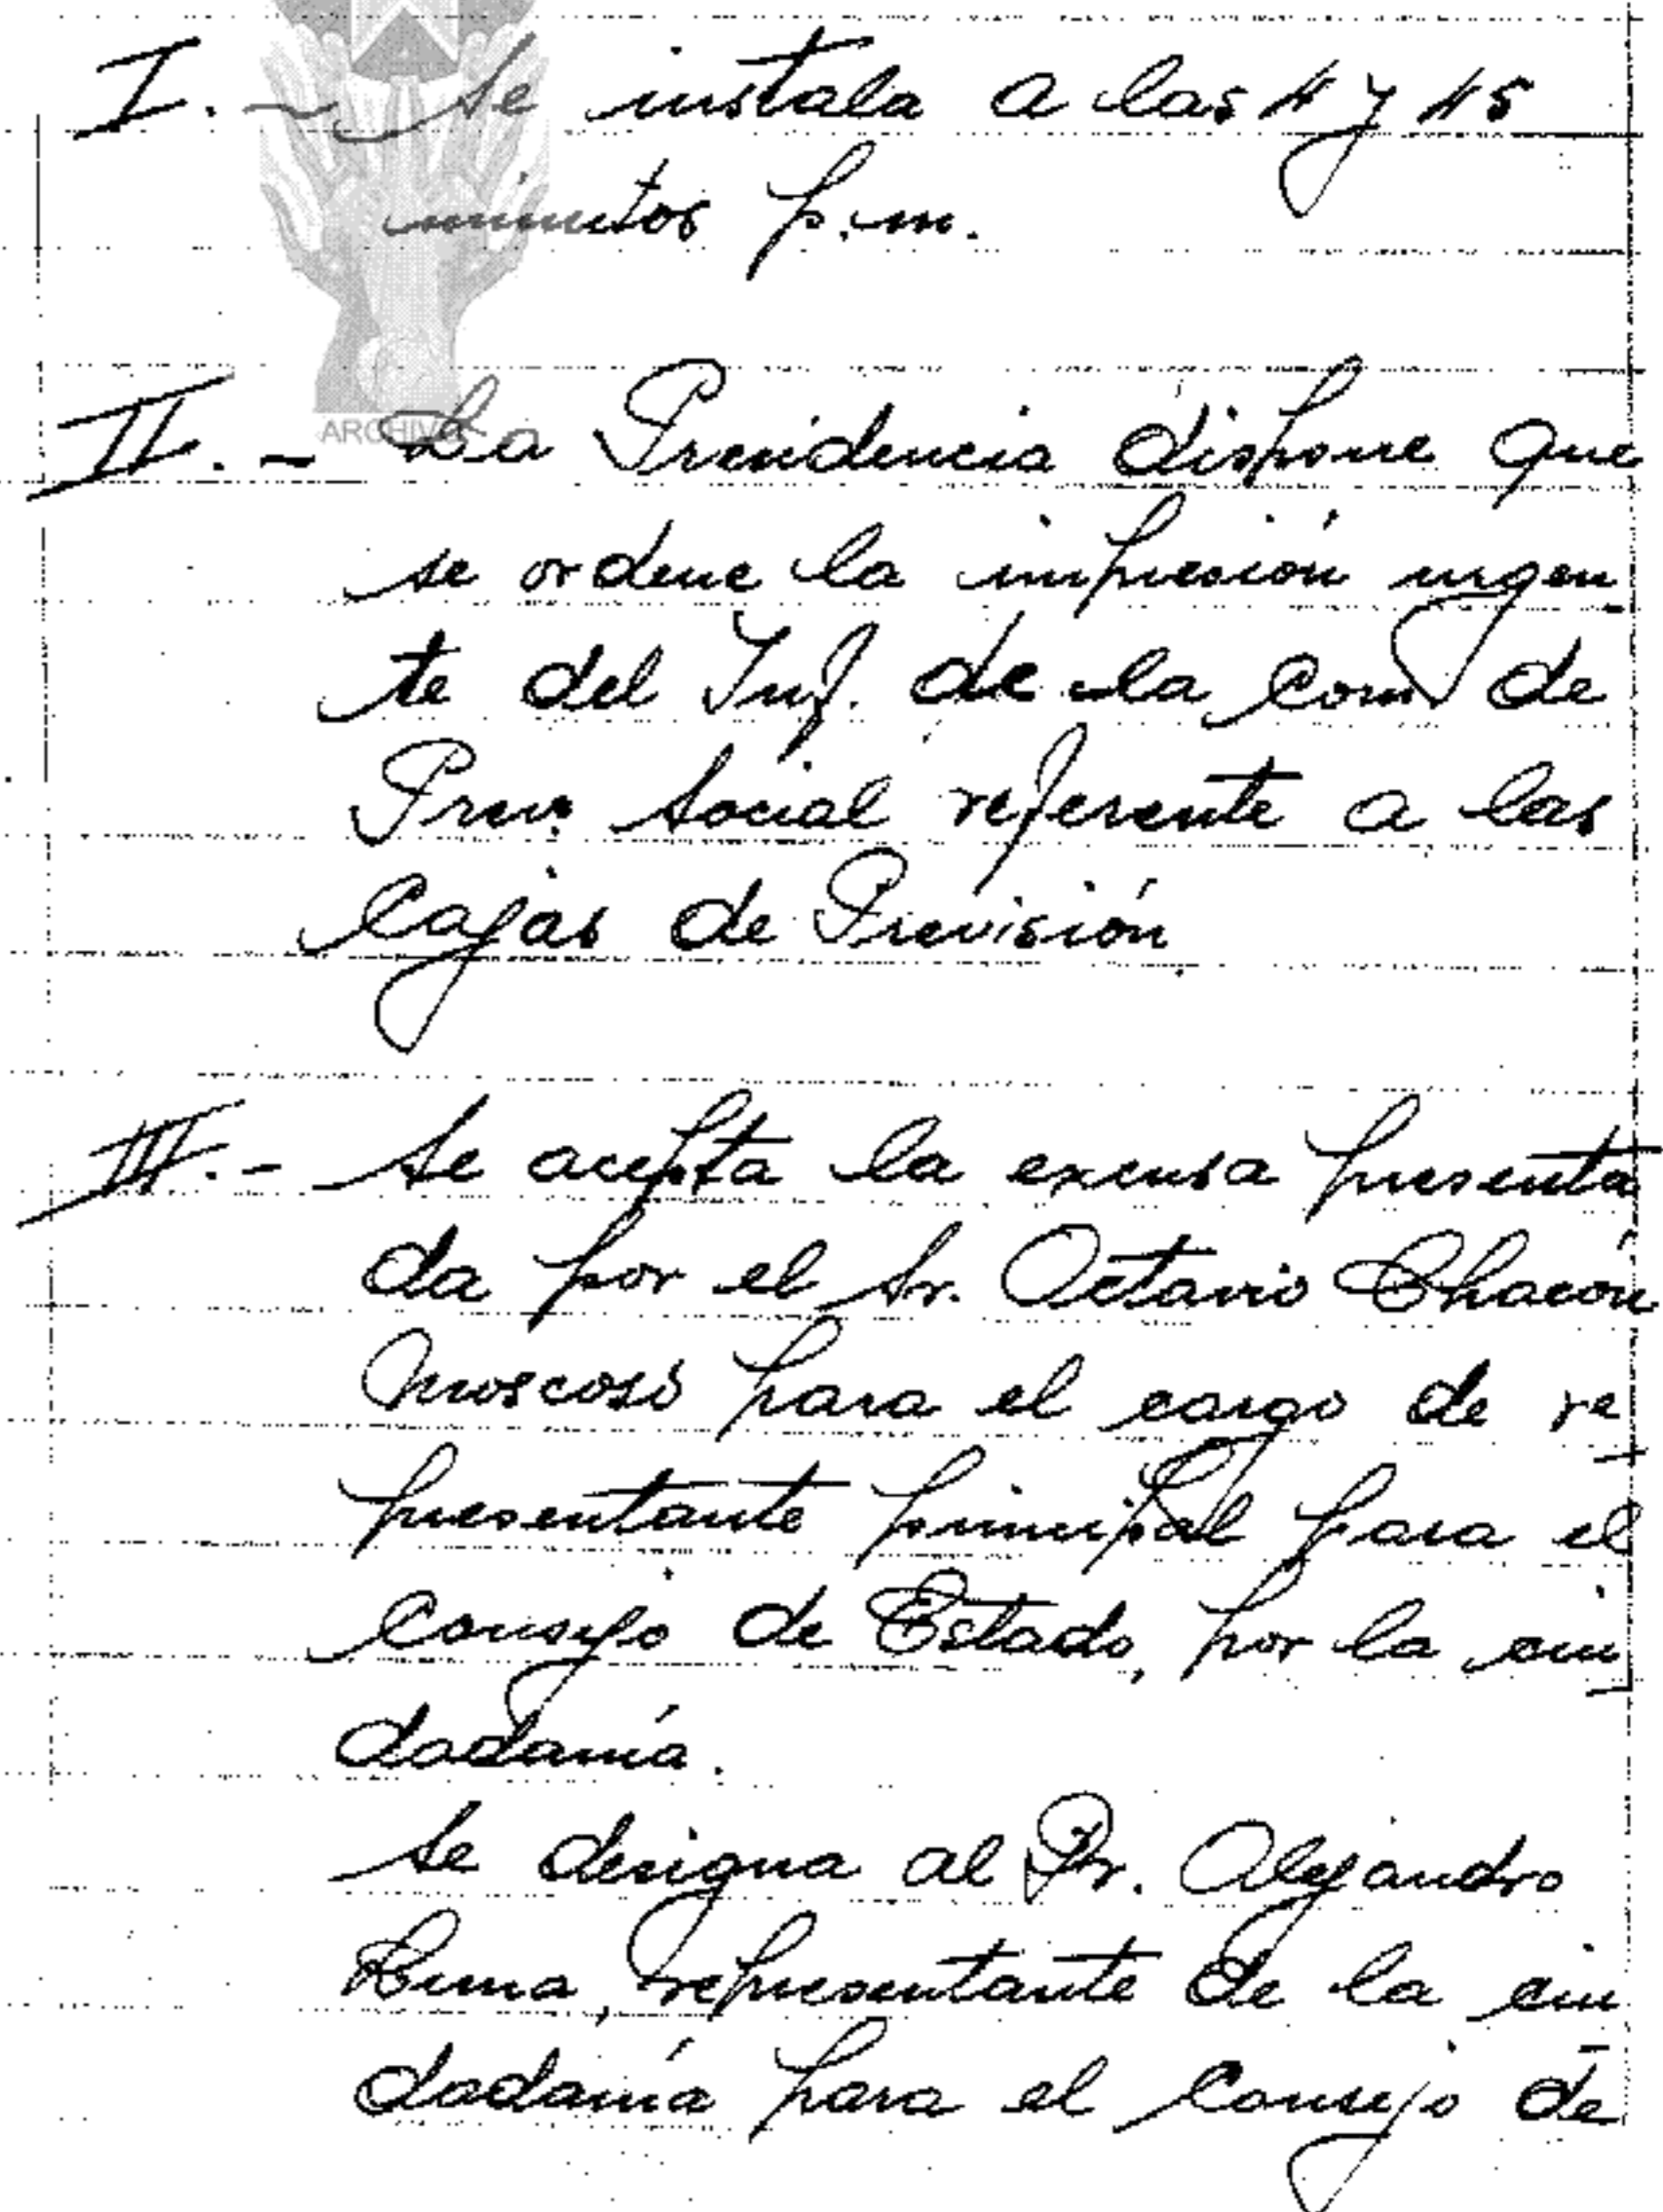 I.- Se instala a las 4 y 45
minutos p.m.
ARCHIVO
II.- La Presidencia dispone que
se ordene la impresión urgen
te del Inf. de la Com. de
Prev. Social referente a las
Cajas de Previsión
III.- Se acepta la excusa presenta
da por el Sr. Octavio Chacón
Moscoso para el cargo de re
presentante principal para el
Consejo de Estado, por la ciu
dadanía.
Se designa al Dr. Alejandro
representante de la ciu
dadanía para el Consejo de